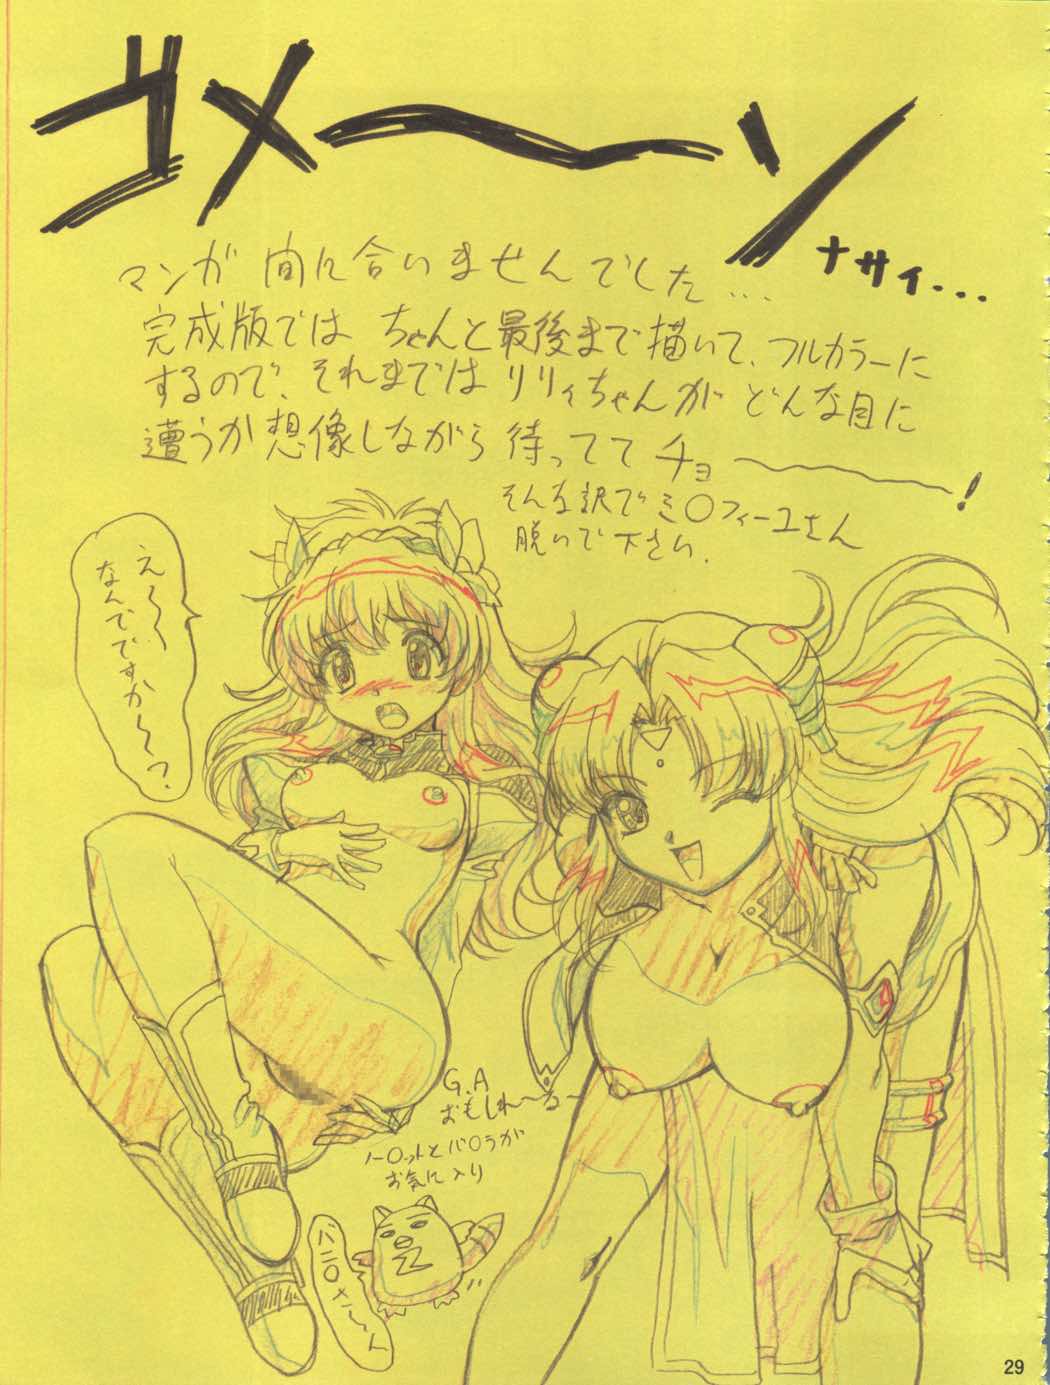 ゴメ〜ン
ナサイ...
マンガ 間に合いませんでした...
完成版では ちゃんと最後まで描いて、フルカラーに
するので、それまではリリィちゃんが どんな目に
遭うか想像しながら 待ってて チョ〜〜!
そんな訳でミ〇フィーユさん
脱いで下さい.
え〜〜
なんでですか〜〜?
G.A
おもしれ〜る〜
ノー〇ットとバ〇ラが
お気に入り
29